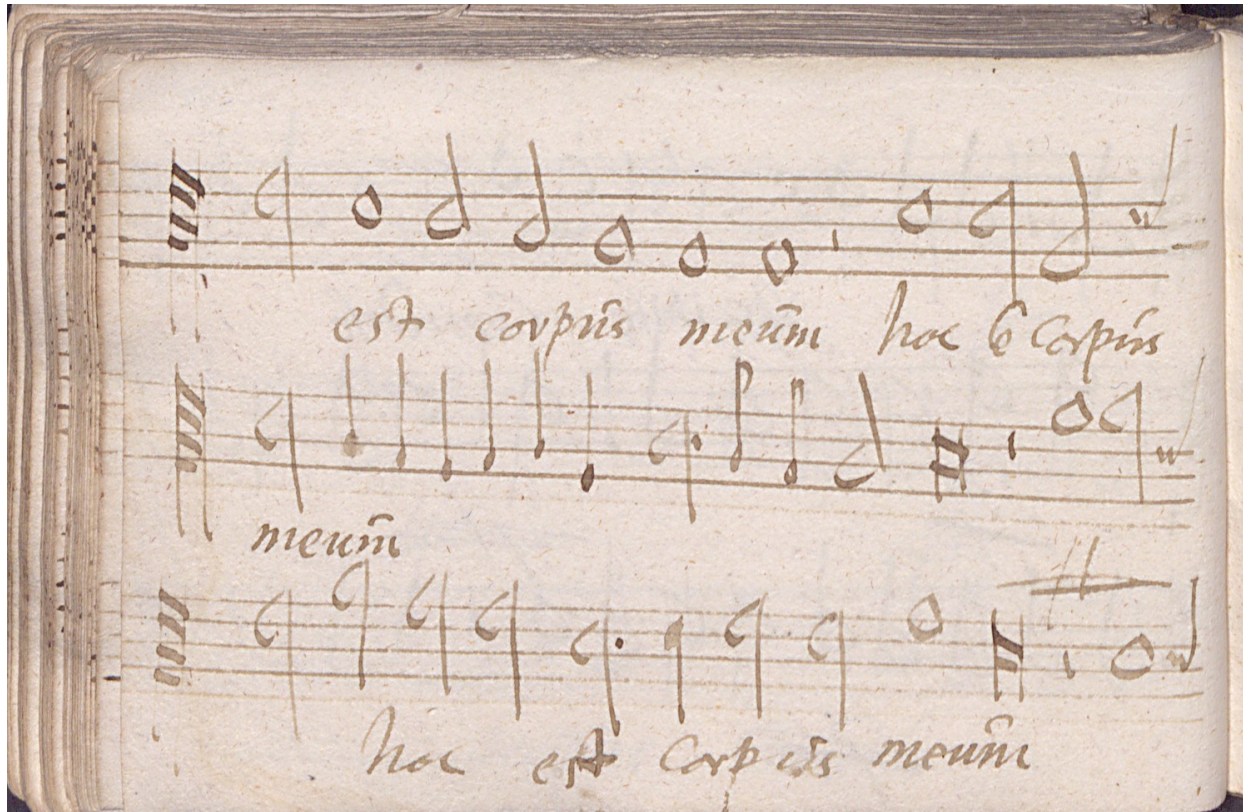 est corpus meum hoc ē corpus
meum
hoc est corpus meum